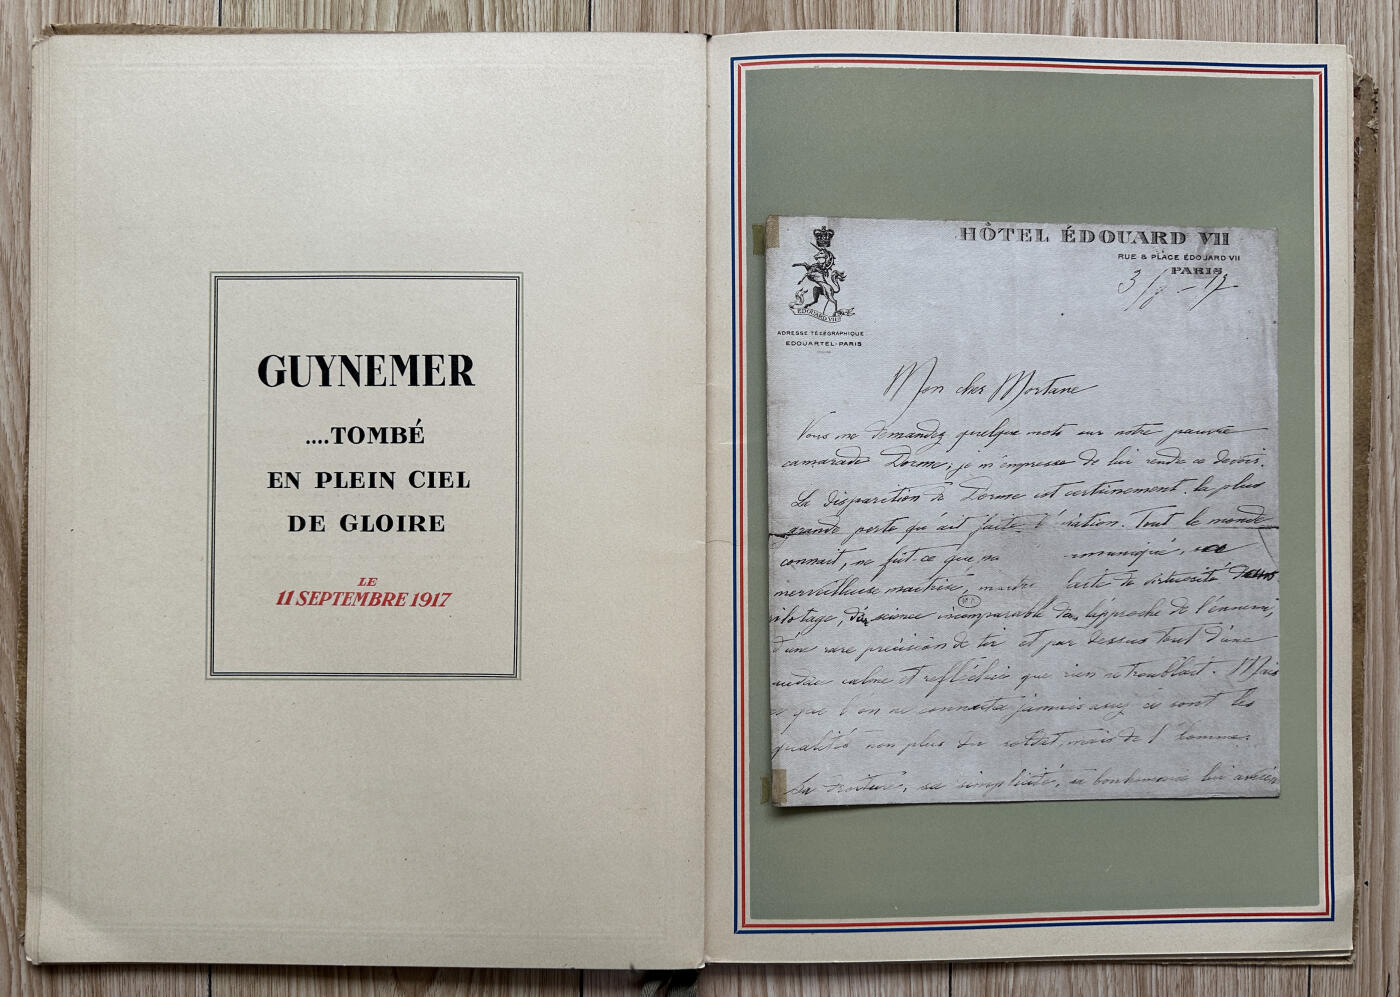 GUYNEMER
....TOMBÉ
EN PLEIN CIEL
DE GLOIRE
LE
11 SEPTEMBRE 1917
HÔTEL ÉDOUARD VII
RUE & PLACE ÉDOUARD VII
PARIS
EDOUARD VII
ADRESSE TÉLÉGRAPHIQUE
EDOUARTEL-PARIS
Mon cher Mortane
Vous me demandez quelque mots sur notre pauvre
camarade Dorme; je m'empresse de lui rendre ce devoir.
La disparition de Dorme est certainement la plus
grande perte qu'ait faite l'aviation. Tout le monde
connait, ne fut-ce que
merveilleuse maitrise, de virtuosité
pilotage, science incomparable dans l'approche de l'ennemi,
d'une rare précision de tir et par dessus tout d'une
audace calme et refléchie que rien ne troublait. Mais
ce que l'on ne connaitra jamais assez ce sont les
qualités non plus du soldat, mais de l'homme.
Sa droiture, sa simplicité, sa bonhommie lui